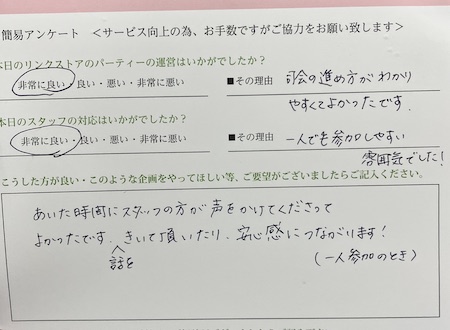 簡易アンケート <サービス向上の為、お手数ですがご協力をお願い致します>
本日のリンクストアのパーティーの運営はいかがでしたか?
非常に良い・良い・悪い・非常に悪い ■その理由 司会の進め方がわかり
やすくてよかったです.
本日のスタッフの対応はいかがでしたか?
非常に良い・良い・悪い・非常に悪い ■その理由 一人でも参加しやすい
雰囲気でした!
こうした方が良い・このような企画をやってほしい等、ご要望がございましたらご記入ください。
あいた時間にスタッフの方が声をかけてくださって
よかったです. きいて頂いたり、安心感につながります!
話を (一人参加のとき)